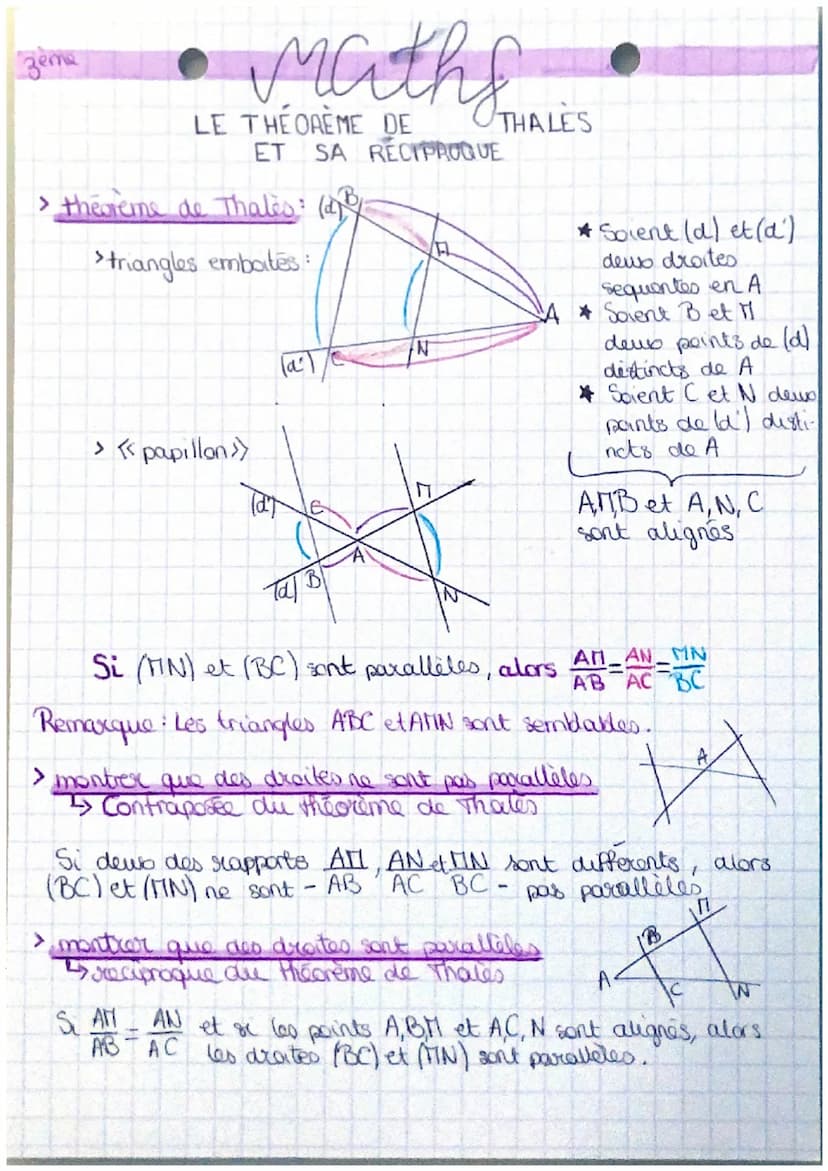 3ème
Maths
LE THÉORÈME DE THALÈS
ET SA RÉCIPROQUE
> théorème de Thalès :
> triangles emboités :
(d) B
M
A
N
(d') C
* Soient (d) et (d')
deux droites
sequantes en A
* Soient B et M
deux points de (d)
distincts de A
* Soient C et N deux
points de (d') disti-
ncts de A
A,M,B et A,N,C
sont alignés
> << papillon >>
(d') C
M
A
(d) B
N
Si (MN) et (BC) sont parallèles, alors AM/AB = AN/AC = MN/BC
Remarque : Les triangles ABC et AMN sont semblables.
A
> montrer que des droites ne sont pas parallèles
↳ Contraposée du théorème de Thalès
Si deux des rapports AM/AB, AN/AC et MN/BC sont différents, alors
(BC) et (MN) ne sont - pas parallèles
> montrer que des droites sont parallèles
↳ réciproque du théorème de Thalès
M
B
A
C
N
Si AM/AB = AN/AC et si les points A,B,M et A,C,N sont alignés, alors
les droites (BC) et (MN) sont parallèles.